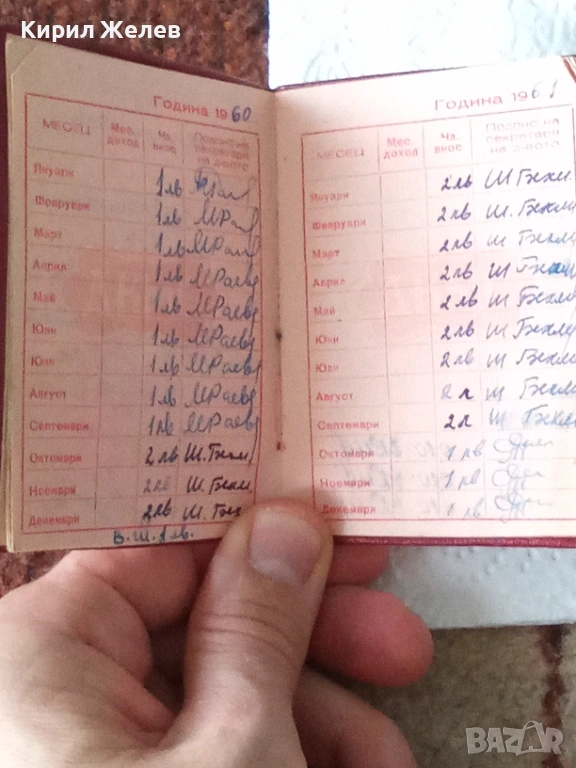 Кирил Желев
Година 1960
МЕСЕЦ Мес. доход Чл. внос Подпис на секретаря на д-вото
Януари 1 лв
Февруари 1 лв М Раев
Март 1 лв М Раев
Април 1 лв М Раев
Май 1 лв М Раев
Юни 1 лв М Раев
Юли 1 лв М Раев
Август 1 лв М Раев
Септември 1 лв М Раев
Октомври 2 лв Ш.
Ноември 2 лв Ш.
Декември 2 лв Ш.
В. Ш. 1 лв.
Година 1961
МЕСЕЦ Мес. доход Чл. внос Подпис на секретаря на д-вото
Януари 2 лв Ш
Февруари 2 лв Ш.
Март 2 лв Ш
Април 2 лв Ш
Май 2 лв Ш
Юни 2 лв Ш
Юли 2 лв Ш
Август 2 л Ш
Септември 2 л Ш
Октомври 1 лв
Ноември 1 лв
Декември 1 лв
BAZAR